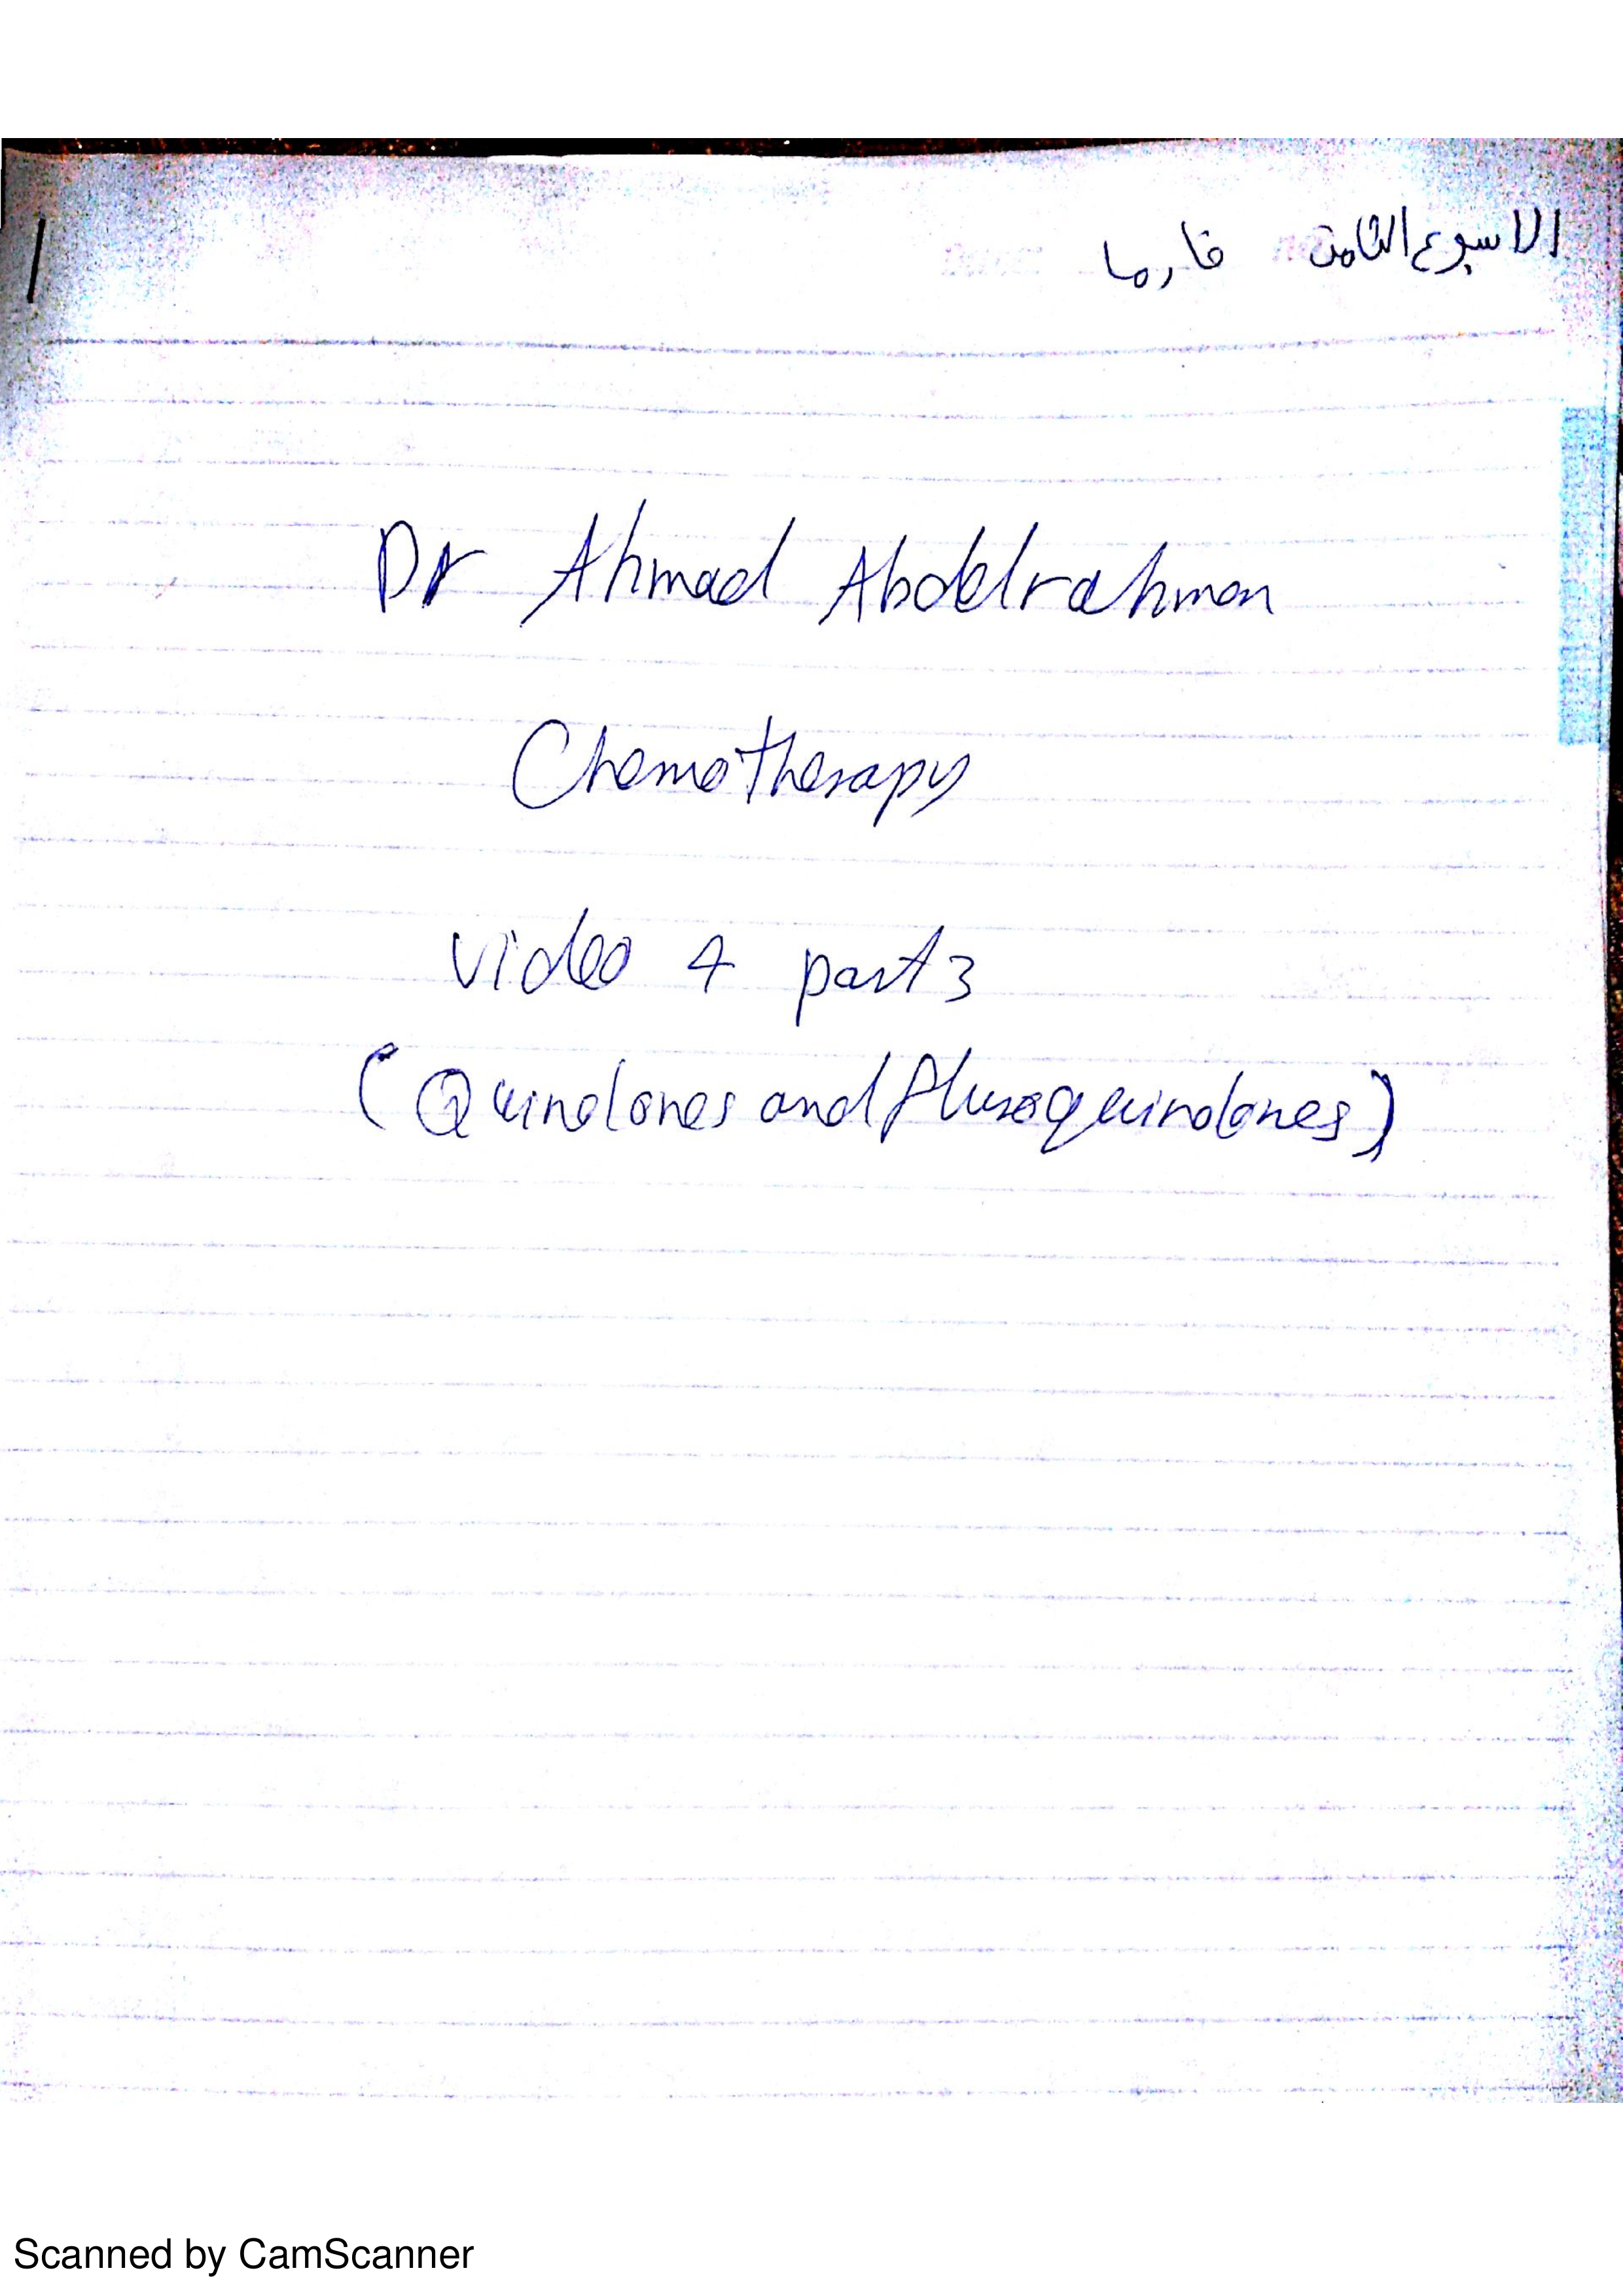 الاسبوع الثامن فارما
1
Dr Ahmad Abdelrahman
Chemotherapy
video 4 part 3
(Quinolones and fluroquinolones)
Scanned by CamScanner